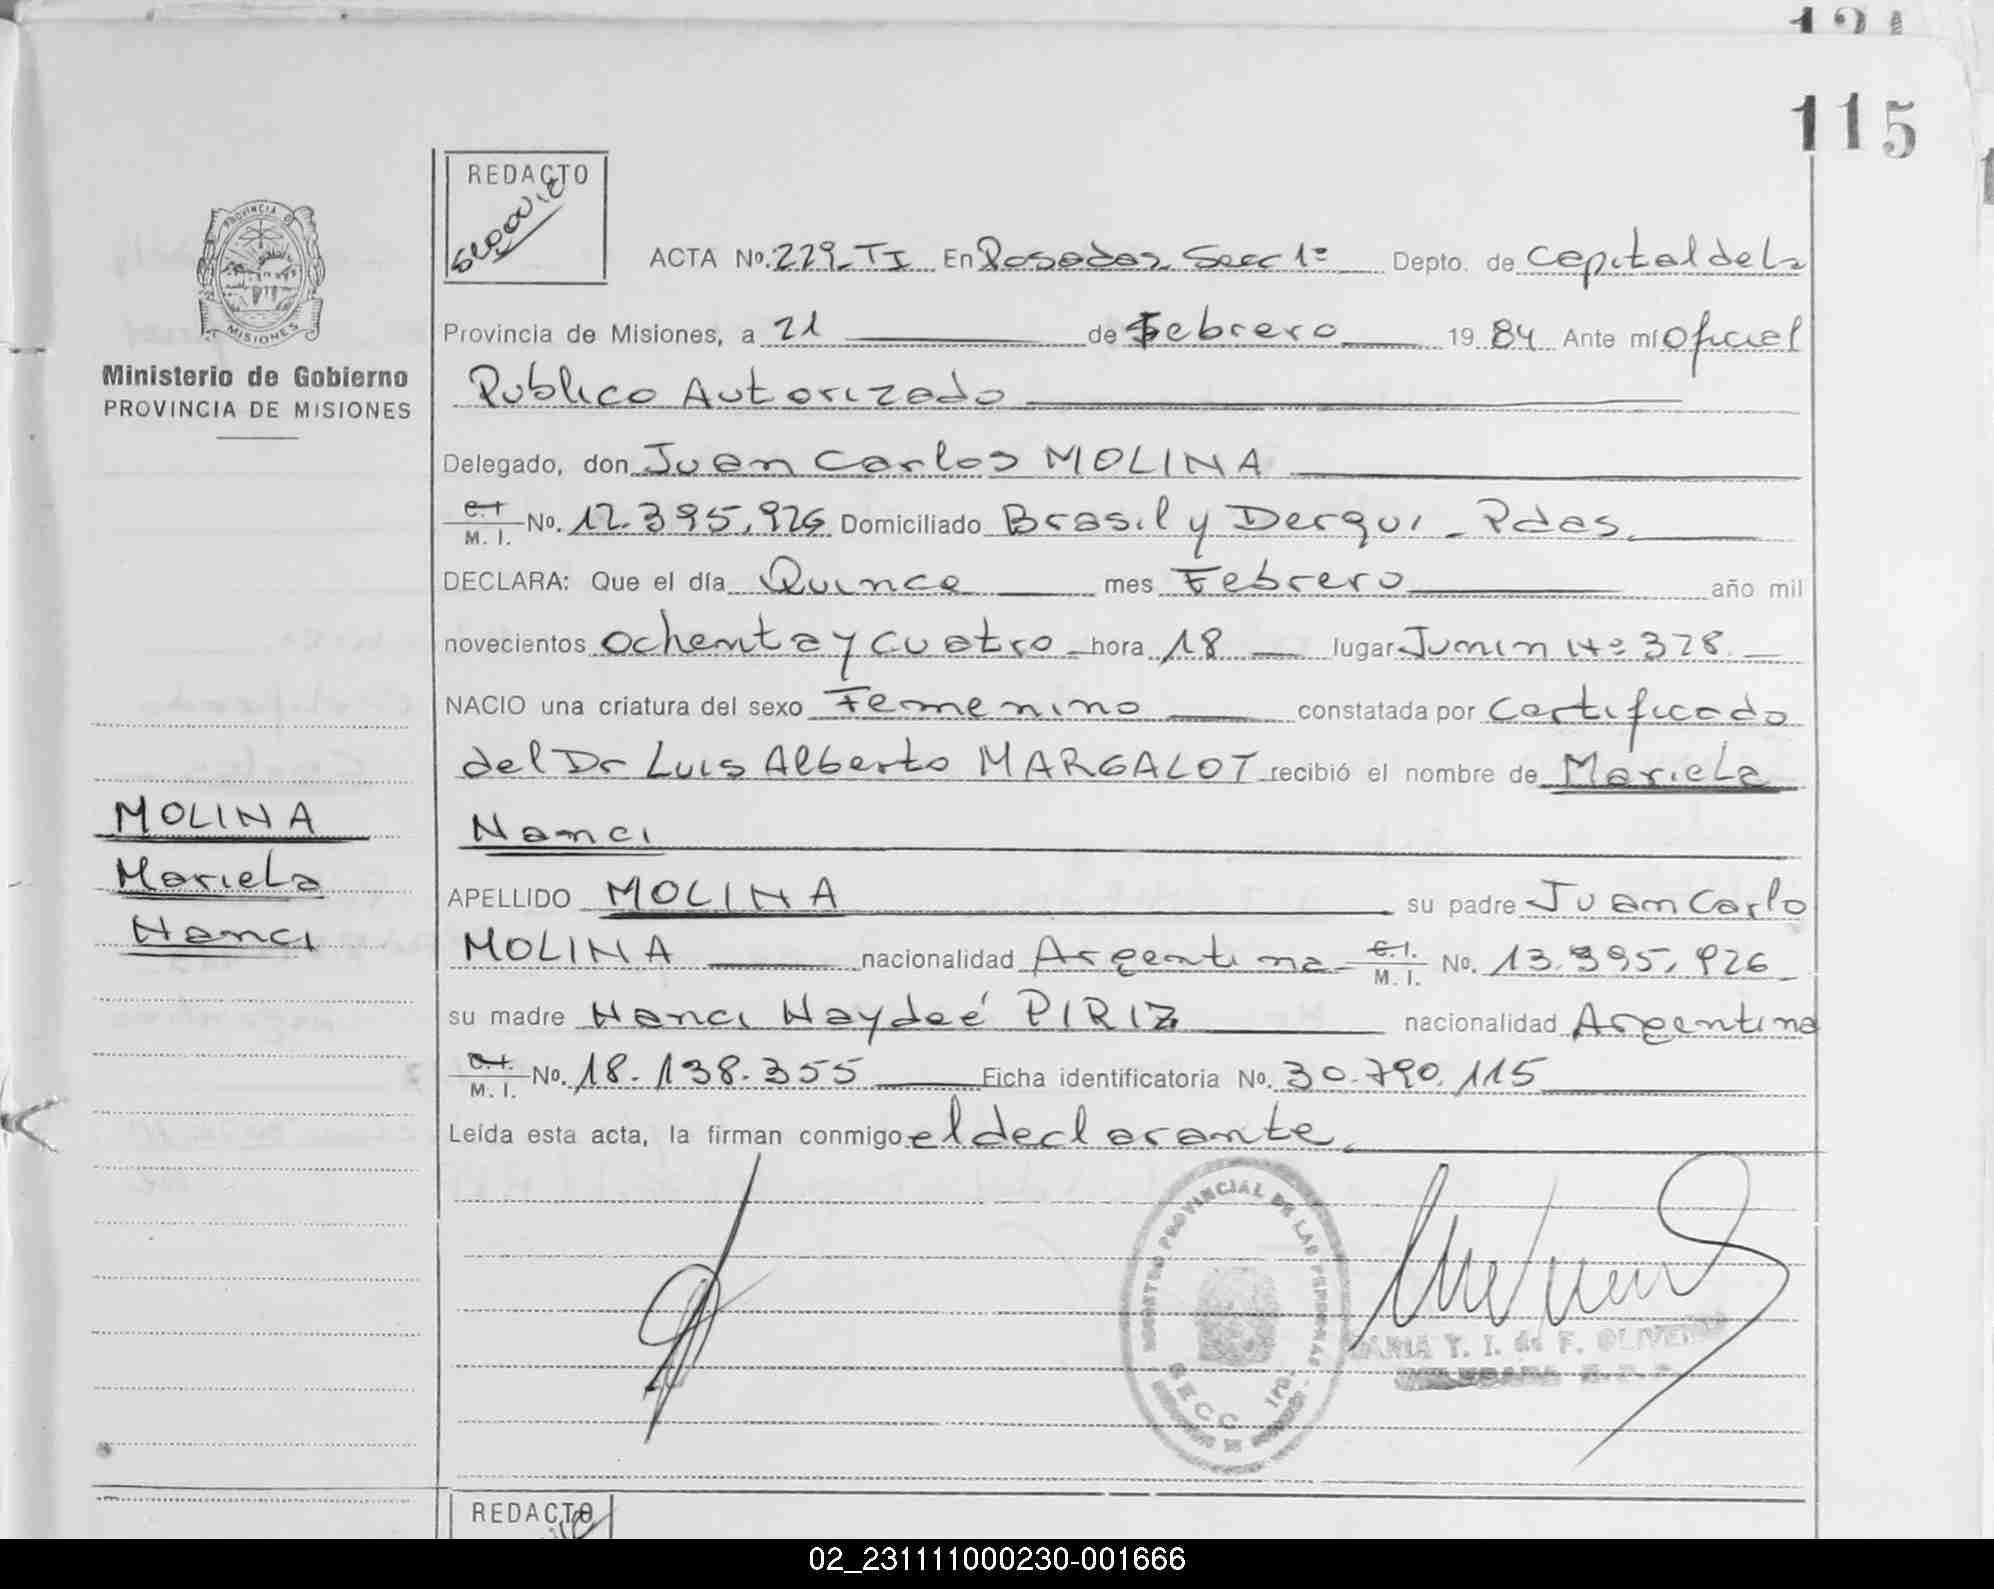 115
REDACTO
PROVINCIA D
MISIONES
Ministerio de Gobierno
PROVINCIA DE MISIONES
ACTA No. 229_TI En Posadas Secc 1ª Depto. de Capital de la
Provincia de Misiones, a 21 de Febrero 19 84 Ante mí Oficial
Publico Autorizado
Delegado, don Juan Carlos MOLINA
C.I. M. I. No. 12.395.926 Domiciliado Brasil y Derqui - Pdas.
DECLARA: Que el día Quince mes Febrero año mil
novecientos ochenta y cuatro hora 18 lugar Junin Nº 328.
NACIO una criatura del sexo Femenino constatada por Certificado
del Dr Luis Alberto MARGALOT recibió el nombre de Mariela
Nanci
MOLINA
Mariela
Nanci
APELLIDO MOLINA su padre Juan Carlo
MOLINA nacionalidad Argentina C.I. M. I. No. 13.395.926
su madre Nanci Haydeé PIRIZ nacionalidad Argentina
C.I. M. I. No. 18.138.355 Ficha identificatoria No. 30.790.115
Leída esta acta, la firman conmigo el declarante
REGISTRO PROVINCIAL DE LAS PERSONAS
SECC 1ra.
Y. I. de F. OLIVEIRA
REDACTO
02_231111000230-001666